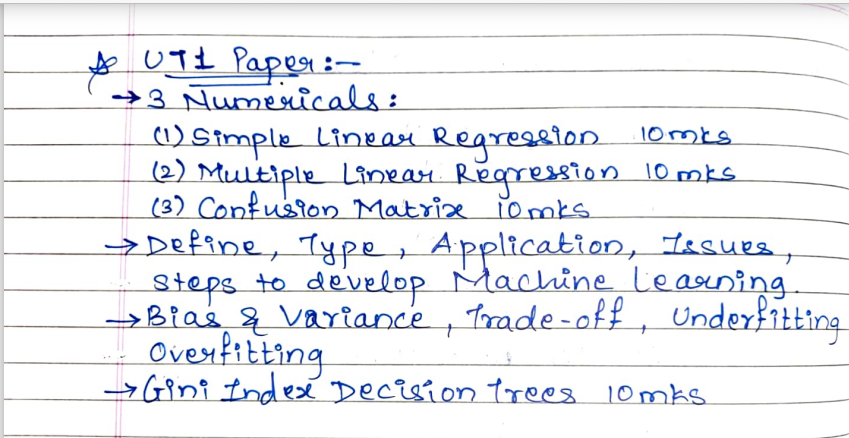 ☆ UT1 Paper :-
→ 3 Numericals :
(1) Simple Linear Regression 10mks
(2) Multiple Linear Regression 10mks
(3) Confusion Matrix 10mks
→ Define, Type, Application, Issues,
steps to develop Machine Learning.
→ Bias & Variance, Trade-off, Underfitting
Overfitting
→ Gini Index Decision Trees 10mks